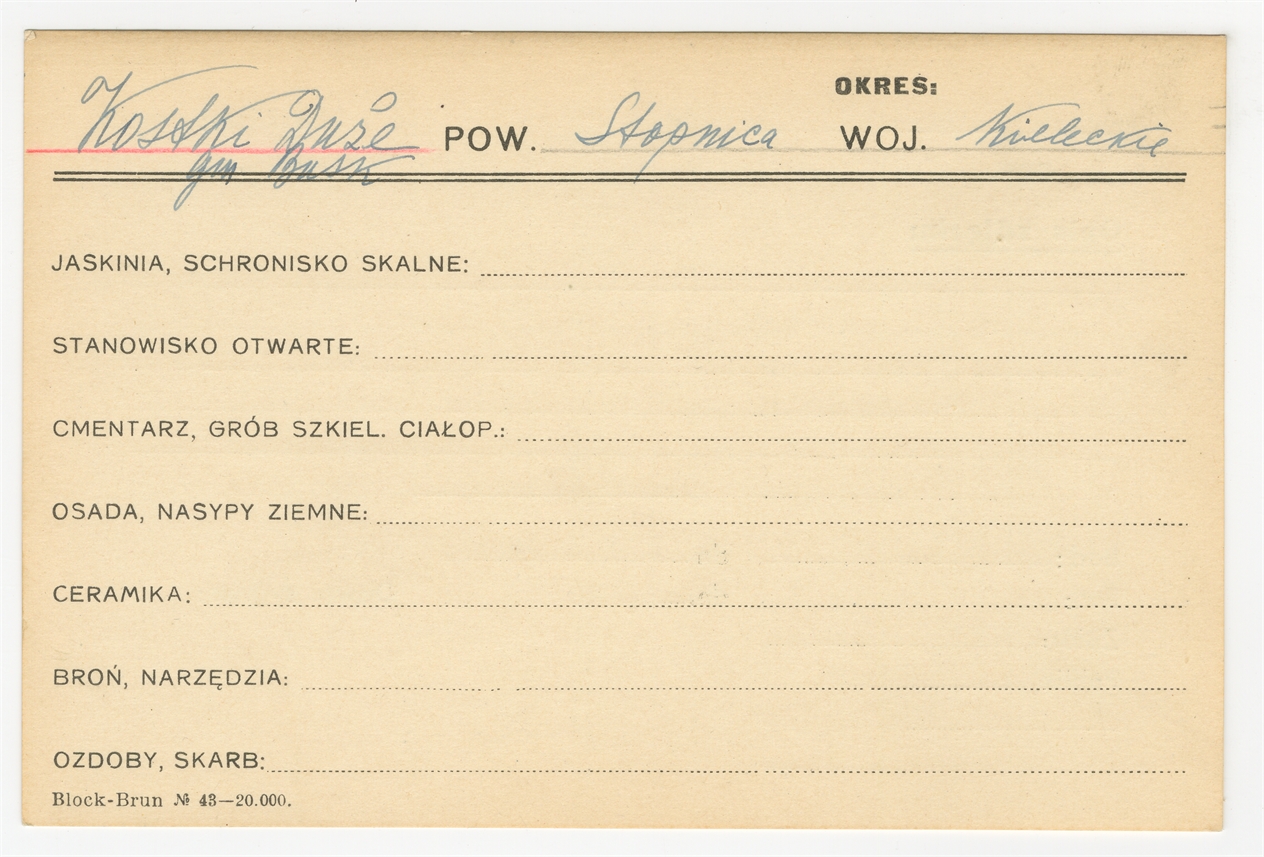 OKRES:
Kostki Duże POW. Stopnica WOJ. Kieleckie
gm Busk
JASKINIA, SCHRONISKO SKALNE:
STANOWISKO OTWARTE:
CMENTARZ, GRÓB SZKIEL. CIAŁOP.:
OSADA, NASYPY ZIEMNE:
CERAMIKA:
BROŃ, NARZĘDZIA:
OZDOBY, SKARB:
Block-Brun № 43—20.000.